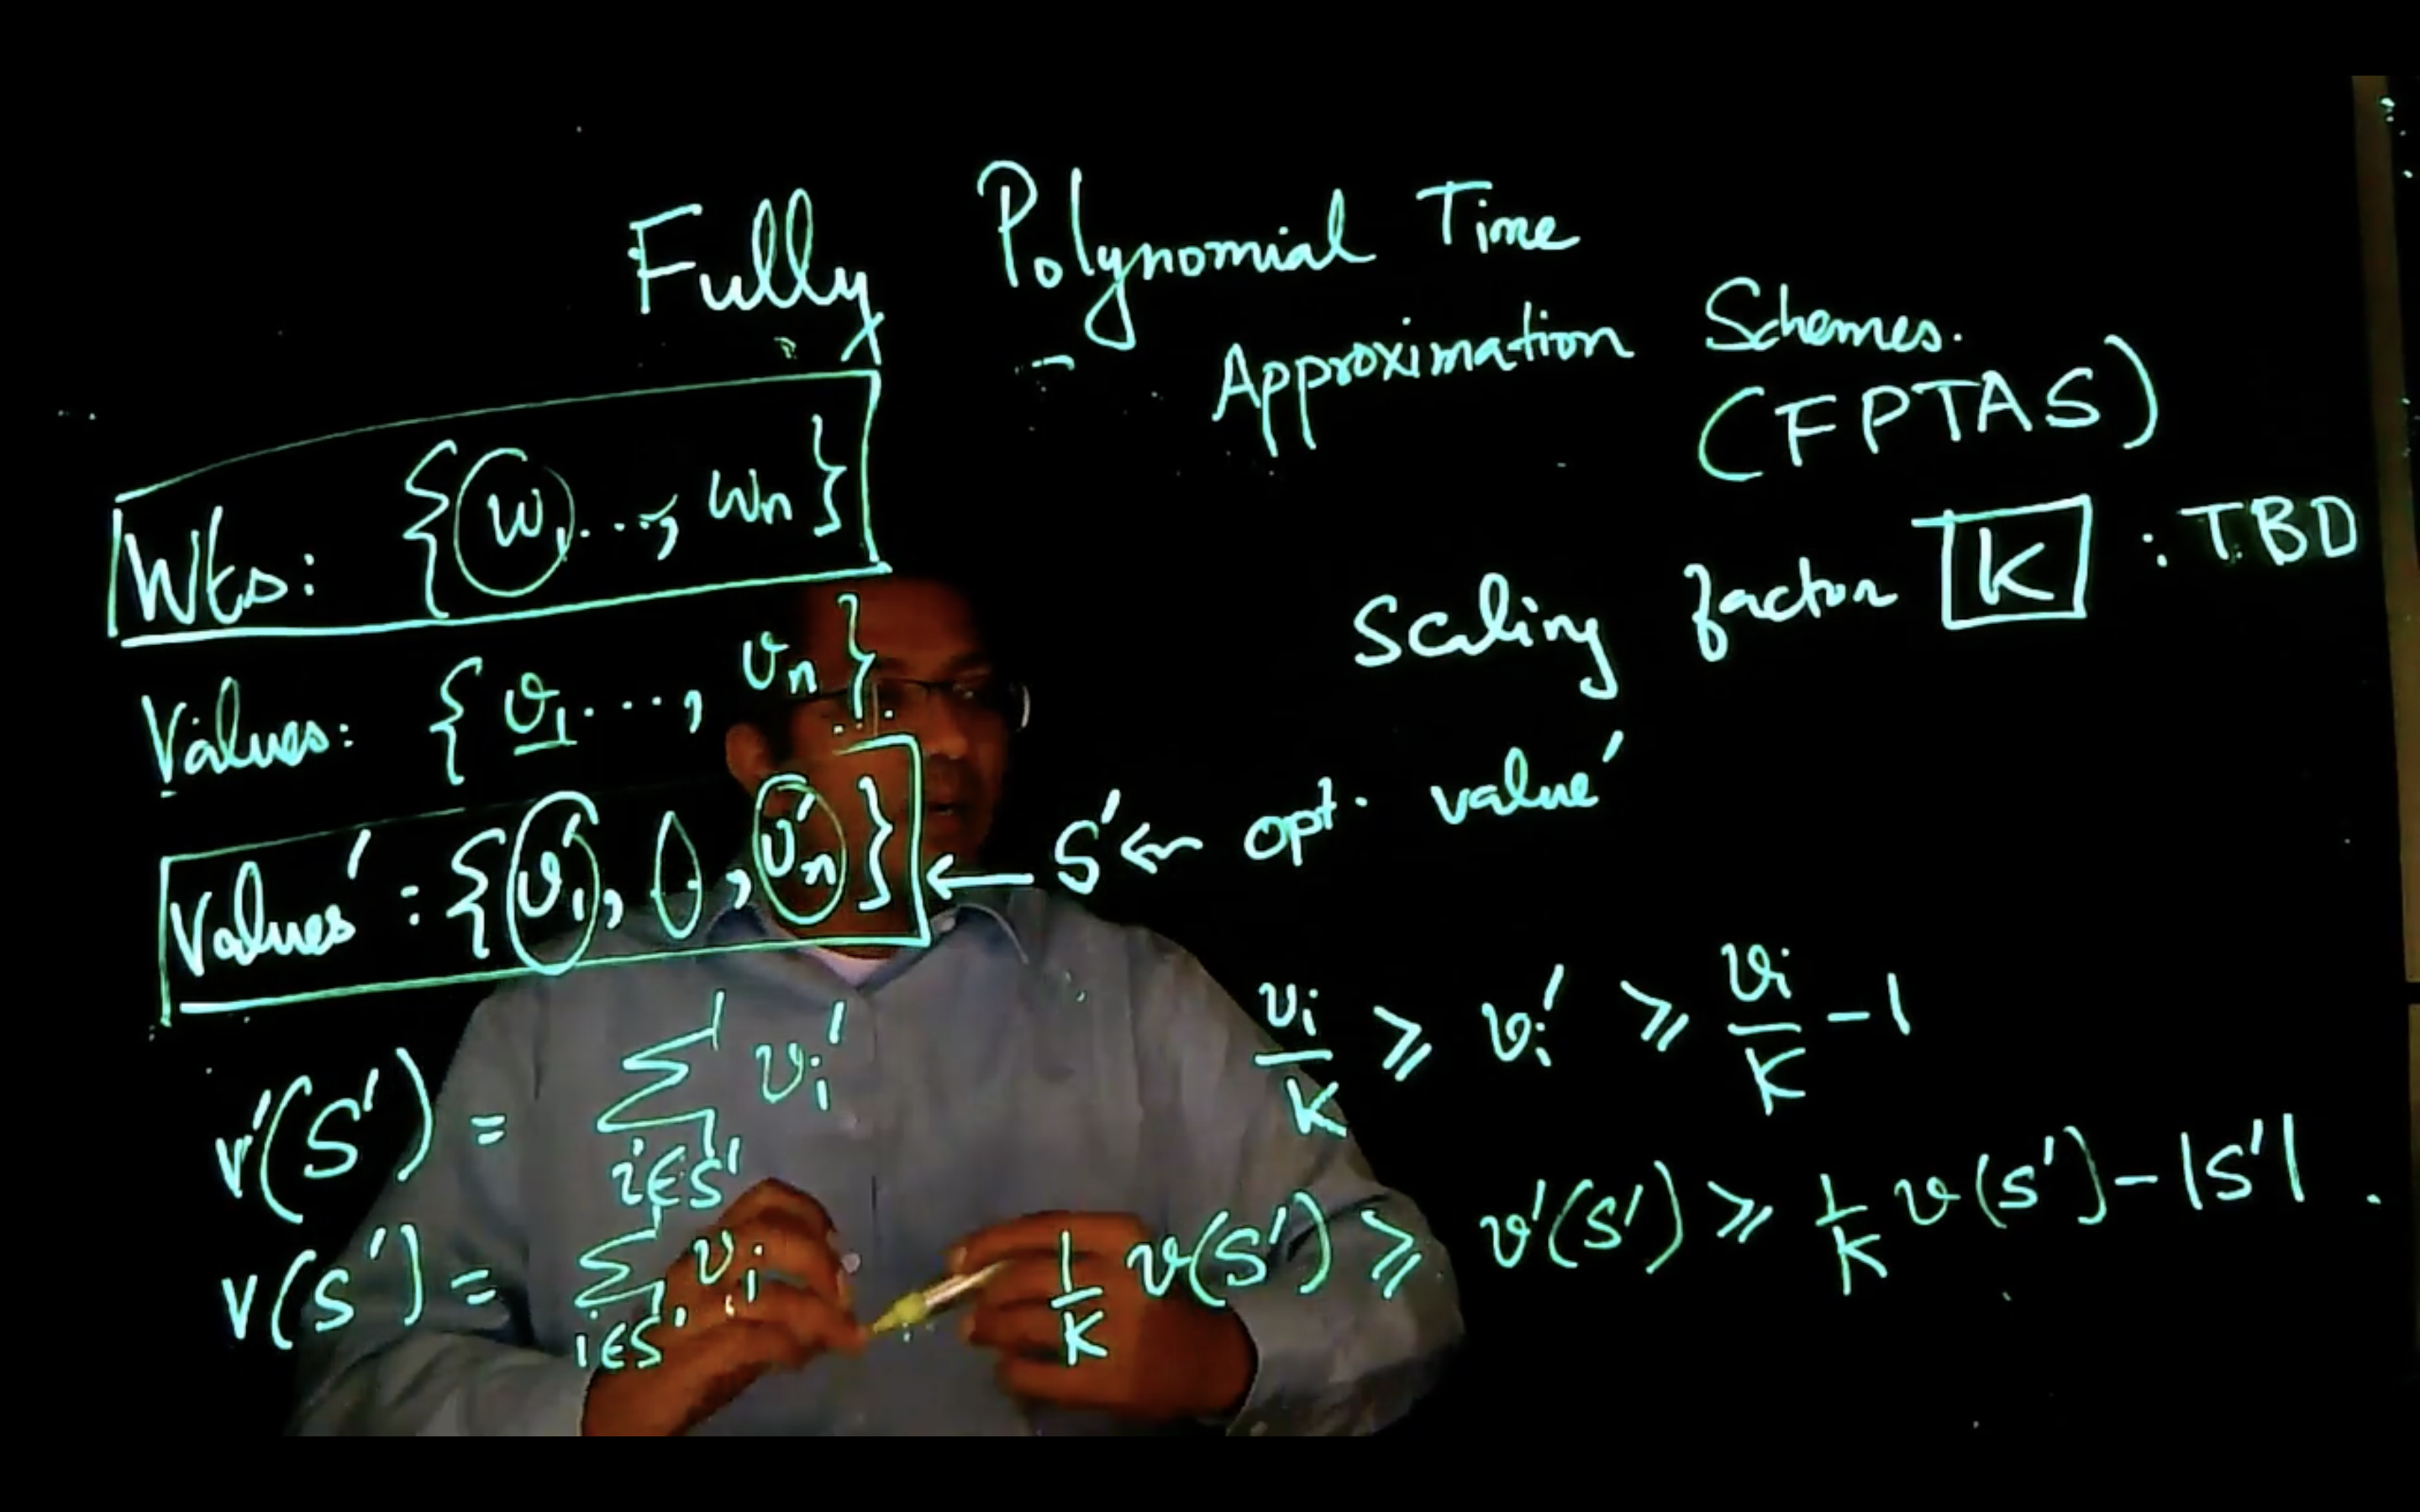 Fully Polynomial Time
Approximation Schemes.
(FPTAS)
Wts: {w₁..., wₙ}
Scaling factor K : TBD
Values: {v₁..., vₙ}
Values′ : {v₁′, , vₙ′} ← S′ ← opt. value′
vᵢ/K ≥ vᵢ′ ≥ vᵢ/K - 1
v′(S′) = ∑ᵢ∈S′ vᵢ′
1/K v(S′) ≥ v′(S′) ≥ 1/K v(S′) - |S′|.
v(S′) = ∑ᵢ∈S′ vᵢ